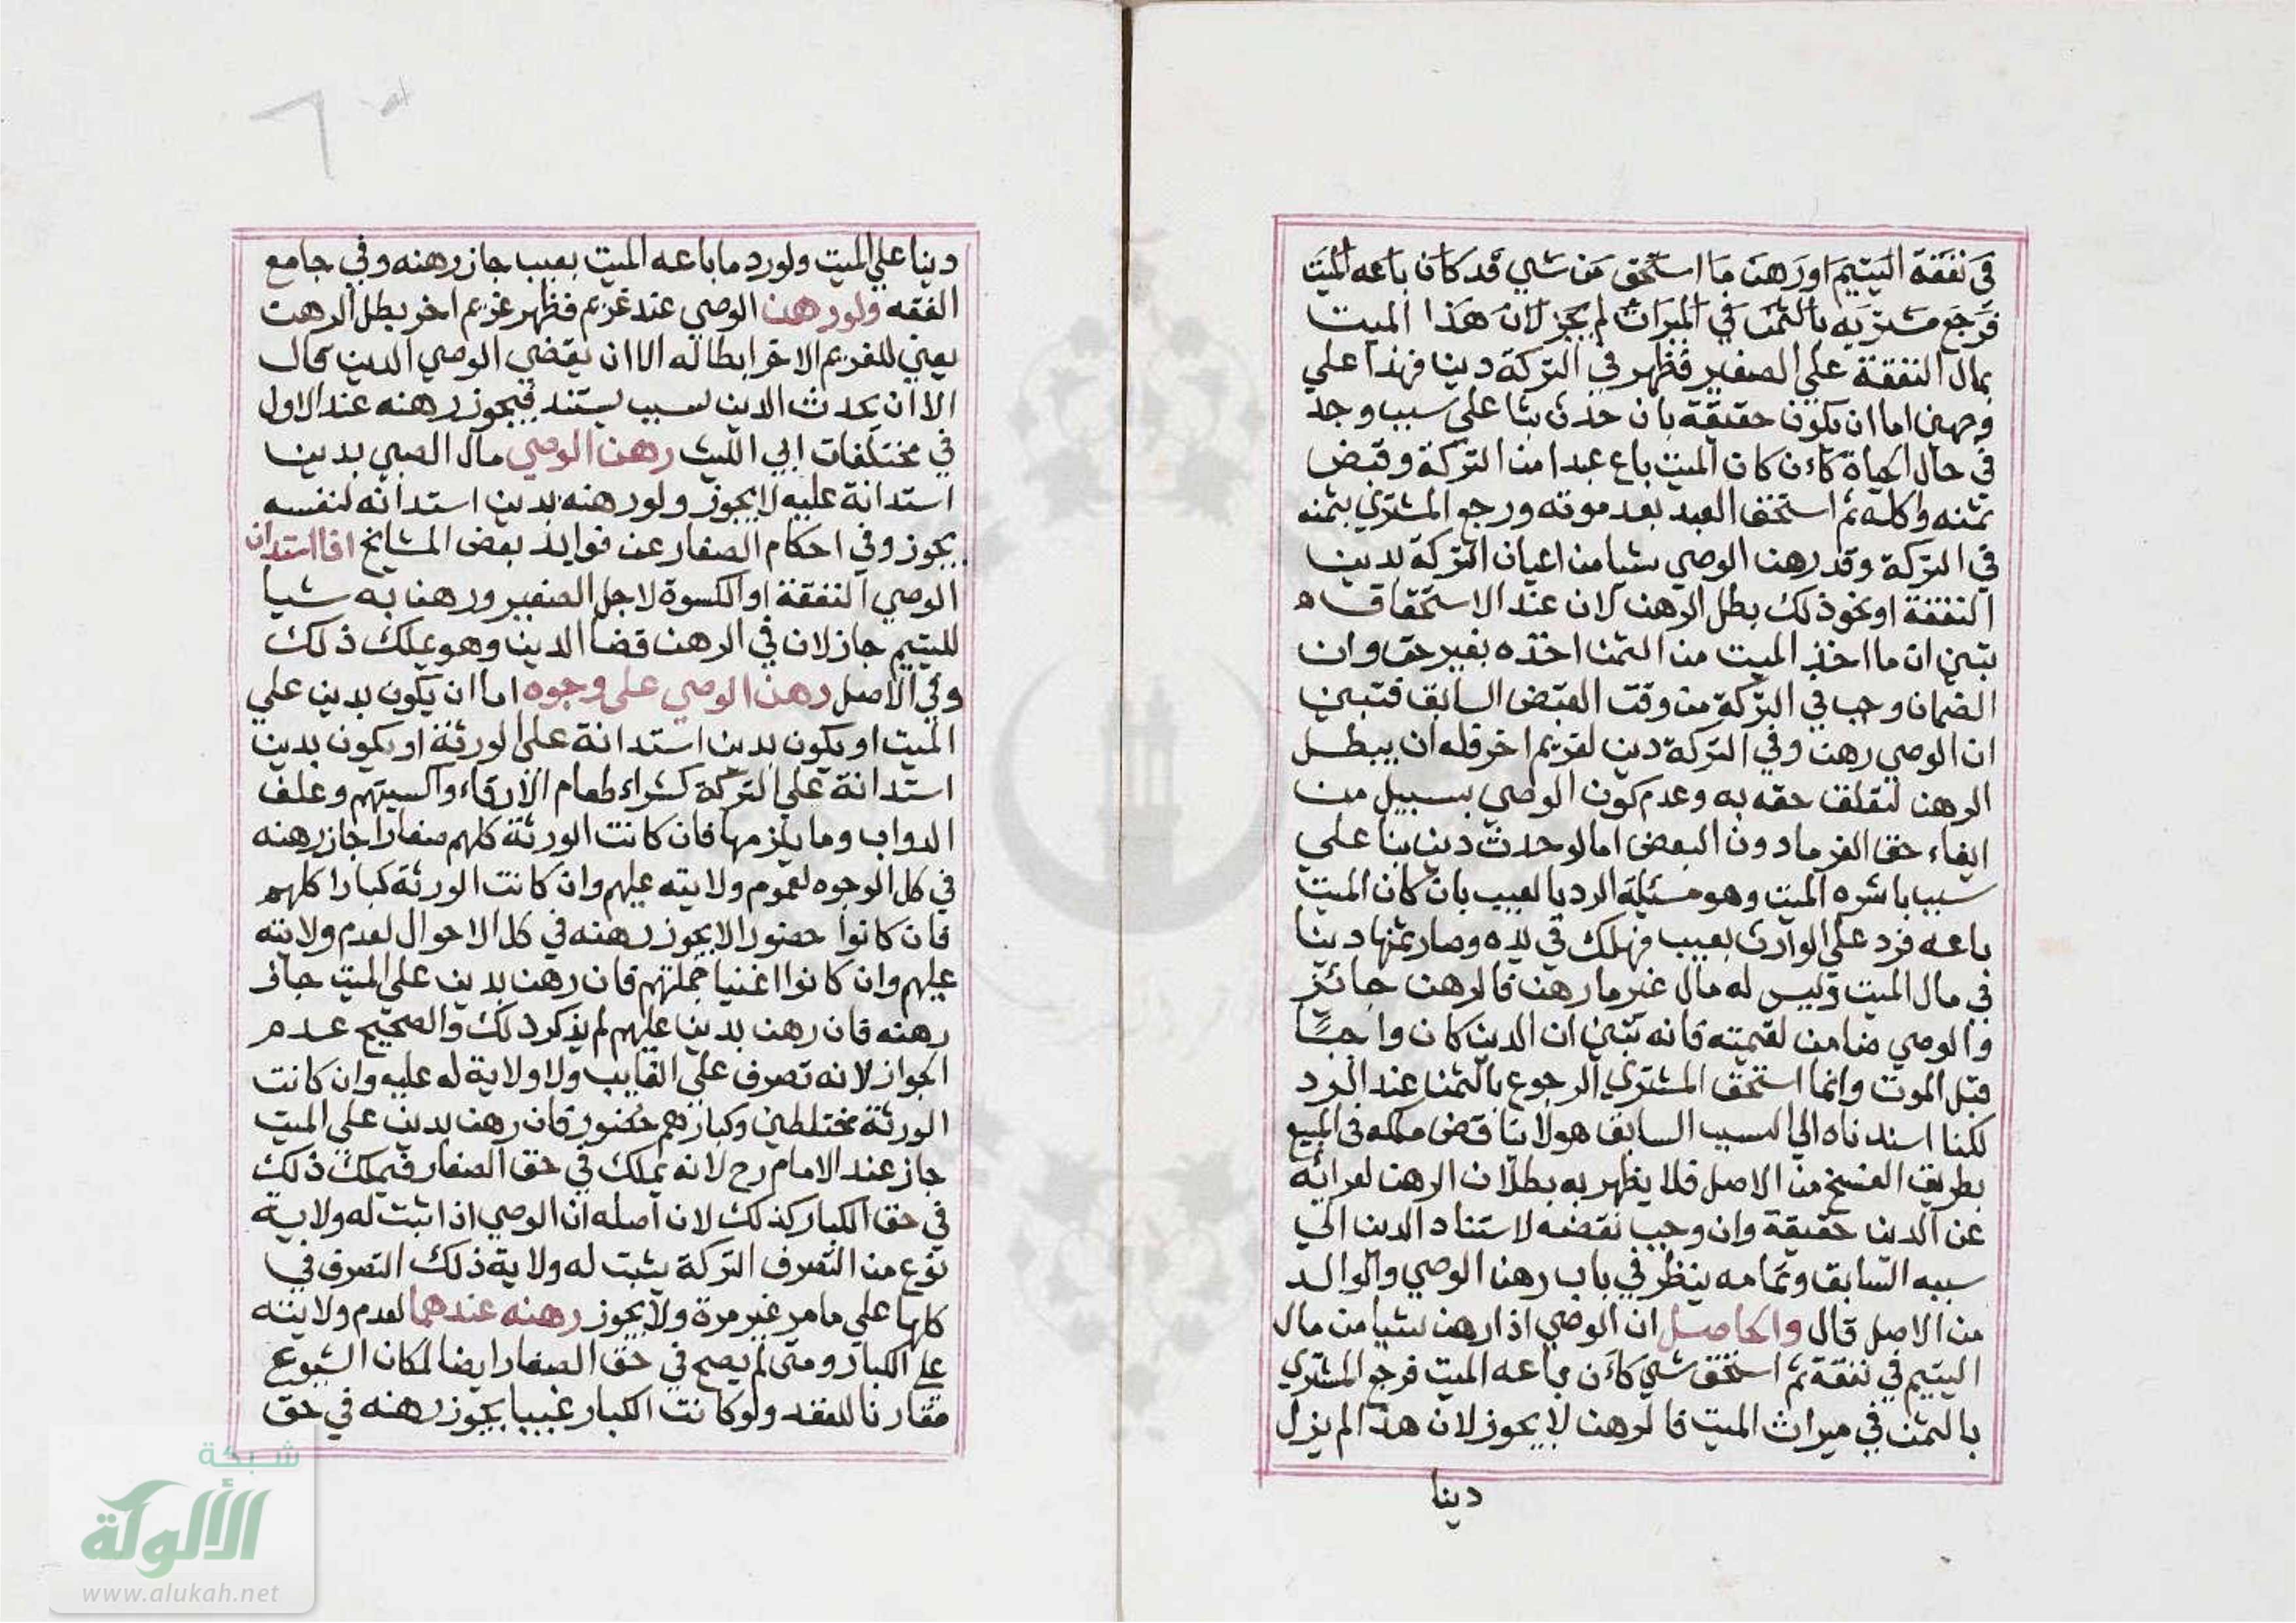 في نفقة اليتيم او رهن ما استحق من شي قد كان باعه الميت
فرجع مشتريه بالثمن في الميراث لم يجز لان هذا الميت
بمال النفقة علي الصغير فظهر في التركة دينا فهذا علي
وجهين اما ان يكون حقيقة بان حدث بنا علي سبب وجد
في حال الحياة كاءن كان الميت باع عبدا من التركة وقبض
ثمنه واكله ثم استحق العبد بعد موته ورجع المشتري بثمنه
في التركة وقد رهن الوصي شيا من اعيان التركة بدين
النفقة او نحو ذلك بطل الرهن لان عند الاستحقاق
تبين ان ما اخذ الميت من الثمن اخذه بغير حق وان
الضمان وجب في التركة من وقت القبض السابق فتبين
ان الوصي رهن وفي التركة دين لغريم اخر فله ان يبطل
الرهن لتعلق حقه به وعدم كون الوصي بسبيل من
ايفاء حق الغرما دون البعض اما لو حدث دين بنا علي
سبب باشره الميت وهو مسئلة الرد بالعيب بان كان الميت
باعه فرد علي الوارث بعيب فهلك في يده وصار ثمنها دينا
في مال الميت وليس له مال غير ما رهن فالرهن جائز
والوصي ضامن لقيمته فانه تبين ان الدين كان واجبا
قبل الموت وانما استحق المشتري الرجوع بالثمن عند الرد
لكنا اسندناه الي السبب السابق هولا ينا قض ملكه في المبيع
بطريق الفسخ من الاصل فلا يظهر به بطلان الرهن لعرائه
عن الدين حقيقة وان وجب نقضه لاستناد الدين الي
سببه السابق وتمامه ينظر في باب رهن الوصي والوالد
من الاصل قال والحاصل ان الوصي اذا رهن شيا من مال
اليتيم في نفقة ثم استحق شي كاءن باعه الميت فرجع المشتري
بالثمن في ميراث الميت فالرهن لا يجوز لان هذا لم يزل
دينا
دينا علي الميت ولو رد ما باعه الميت بعيب جاز رهنه وفي جامع
الفقه ولو رهن الوصي عند غريم فظهر غريم اخر بطل الرهن
يعني للغريم الاخر ابطاله الا ان يقضي الوصي الدين بحال
الا ان يحدث الدين لسبب يستند فيجوز رهنه عند الاول
في مختلفات ابي الليث رهن الوصي مال الصبي بدين
استدانة عليه لا يجوز ولو رهنه بدين استدانه لنفسه
يجوز وفي احكام الصغار عن فوايد بعض المشايخ اذا استدان
الوصي النفقة او الكسوة لاجل الصغير ورهن به شيا
لليتيم جاز لان في الرهن قضا الدين وهو يملك ذلك
وفي الاصل رهن الوصي علي وجوه اما ان يكون بدين علي
الميت او يكون بدين استدانة علي الورثة او يكون بدين
استدانة علي التركة كشراء طعام الارقاء واكسيتهم وعلف
الدواب وما يلزمها فان كانت الورثة كلهم صغارا جاز رهنه
في كل الوجوه لعموم ولايته عليهم وان كانت الورثة كبارا كلهم
فان كانوا حضورا لا يجوز رهنه في كل الاحوال لعدم ولايته
عليهم وان كانوا اغنيا جملتهم فان رهن بدين علي الميت جاز
رهنه فان رهن بدين عليهم لم يذكر ذلك والصحيح عدم
الجواز لانه تصرف علي الغايب ولا ولاية له عليه وان كانت
الورثة مختلطين وكبارهم حضور فان رهن بدين علي الميت
جاز عند الامام رح لانه يملك في حق الصغار فيملك ذلك
في حق الكبار كذلك لان اصله ان الوصي اذا ثبت له ولاية
نوع من التصرف التركة يثبت له ولاية ذلك التصرف في
كلها علي ما مر غير مرة ولا يجوز رهنه عندهما لعدم ولايته
علي الكبار ومتي لم يصح في حق الصغار ايضا لمكان الشيوع
مقارنا للعقد ولو كانت الكبار غيبا يجوز رهنه في حق
شبكة
الألوكة
www.alukah.net